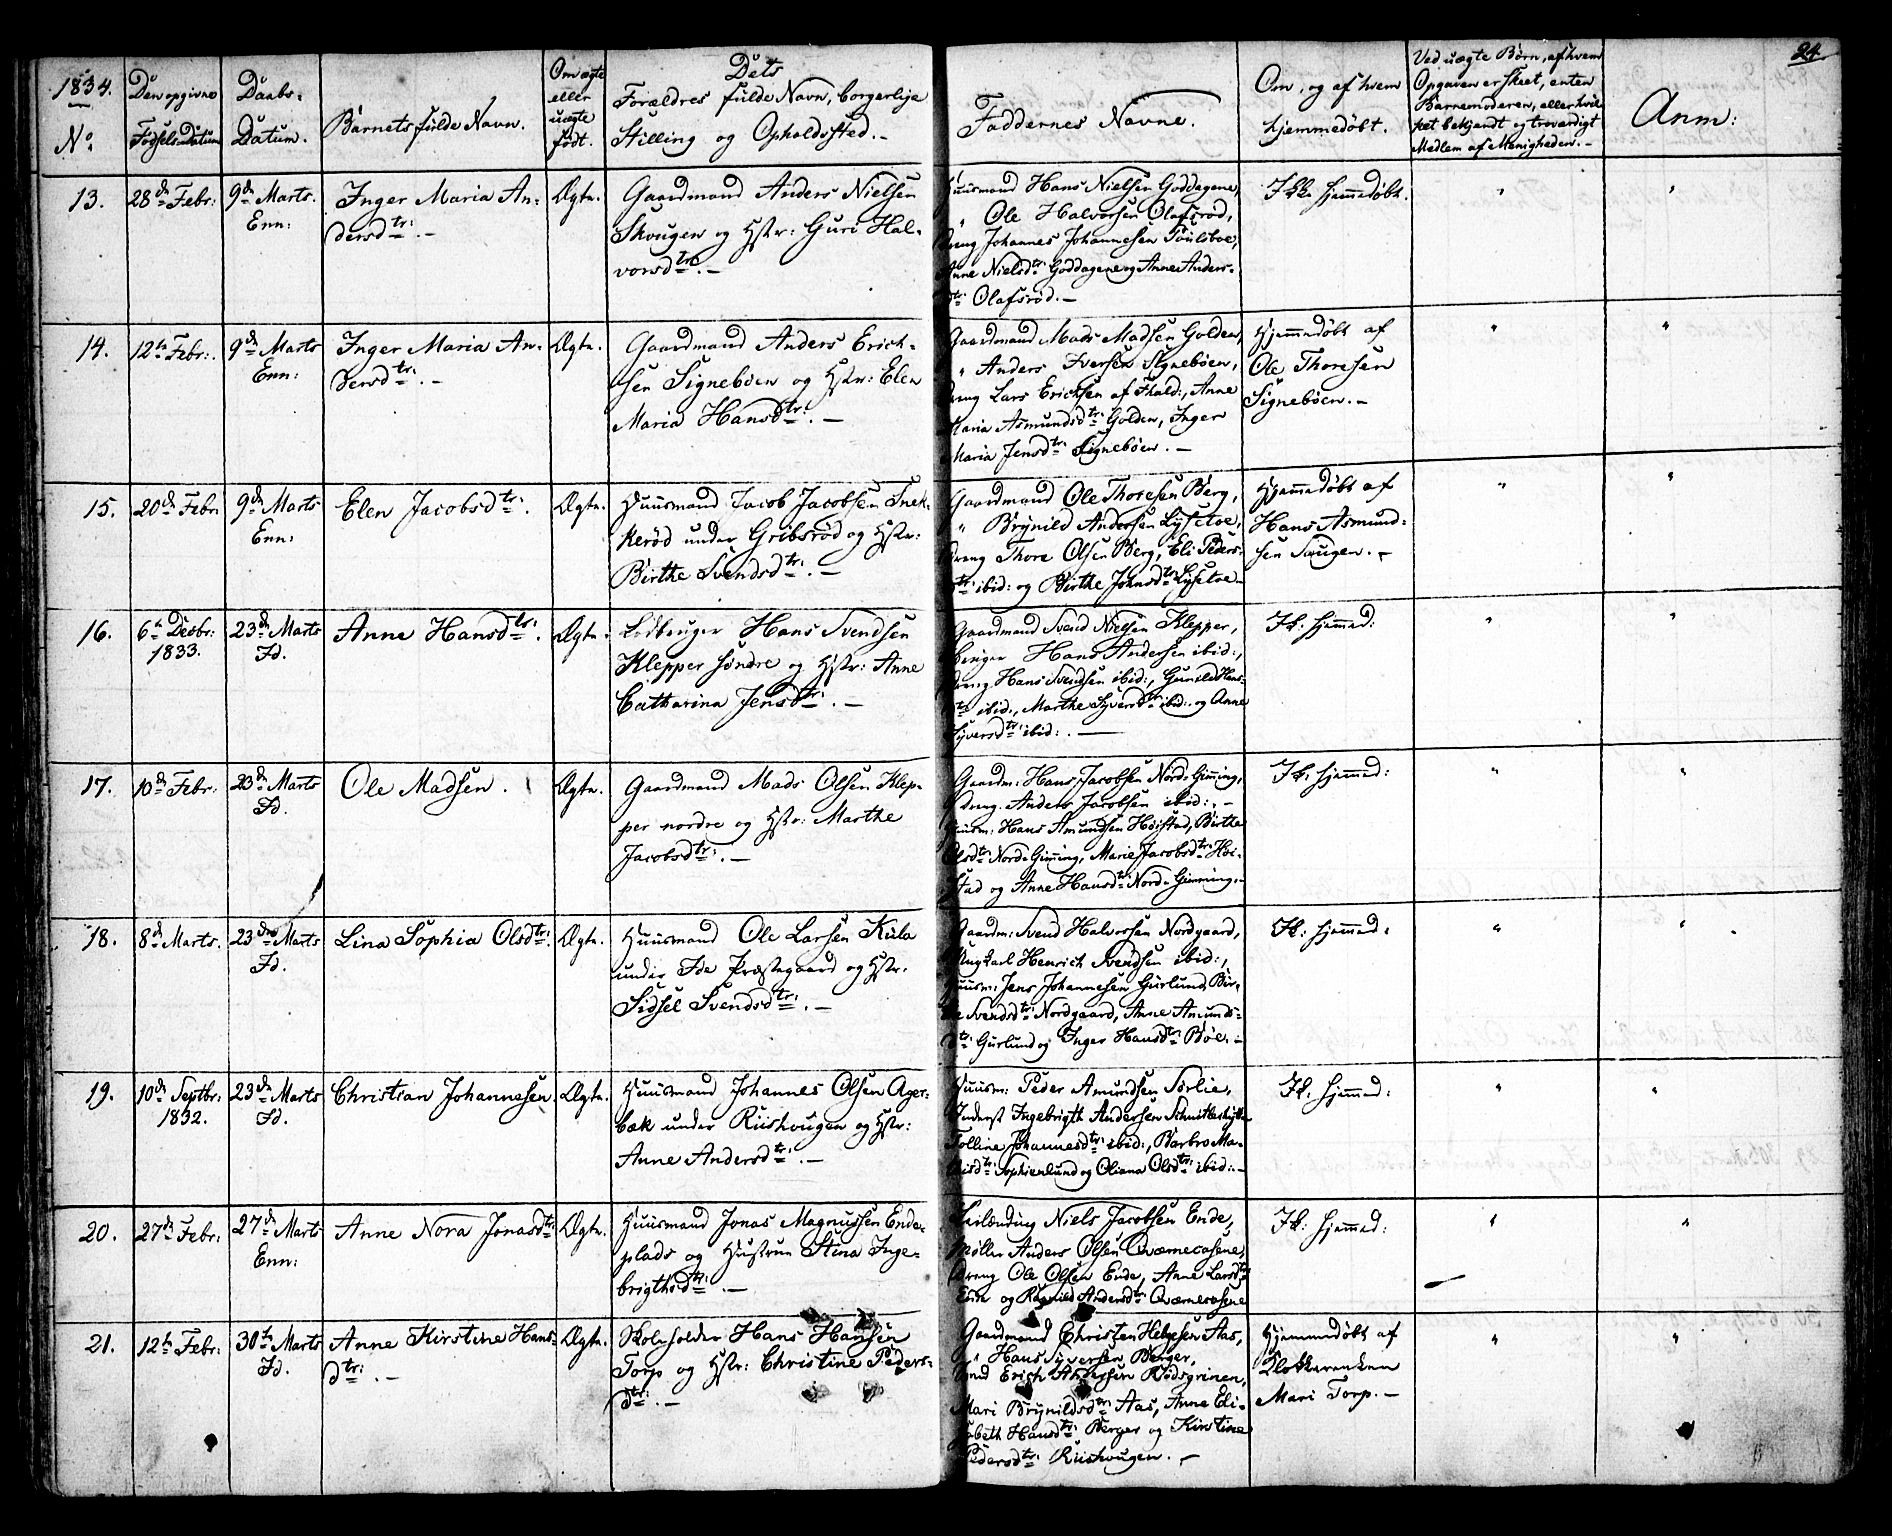 24.
1834.
No.
Den opgivne
Fødsels-Datum
Daabs-
Datum.
Barnets fulde Navn.
Om ægte
eller
uægte
født.
Dets
Forældres fulde Navn, borgerlige
Stilling og Opholdssted.-
Faddernes Navne.
Om, og af hvem
hjemmedøbt.
Ved uægte Børn, af hvem
Opgaven er skeet, enten
Barnemoderen, eller hvil-
ket bekjendt og troværdigt
Medlem af Menigheden.-
Anm:
13.
28de Febr:
9de Marts.
Enn:
Inger Maria An-
dersdtr:.-
Ægte.
Gaardmand Anders Nielsen
Skougen og Hstr: Guri Hal-
vorsdtr:.-
Huusmand Hans Nielsen Goddagene,
" Ole Halvorsen Olafsrød,
Dreng Johannes Johannesen
Anne Nielsdtr: Goddagene og Anne Anders-
dtr: Olafsrød.-
Ikke hjemmedøbt.
"
"
14.
12te Febr:.
9de Marts
Enn:
Inger Maria An-
dersdtr:.-
Ægte.
Gaardmand Anders Erich-
sen Signebøen og Hstr: Elen
Maria Hansdtr:.-
Gaardmand Mads Madsen Golden,
" Anders Iversen Signebøen,
Dreng Lars Erichsen af Fhald:, Anne
Maria Asmundsdtr: Golden, Inger
Maria Jensdtr: Signebøen.-
Hjemmedøbt af
Ole Thoresen
Signebøen.-
"
"
15.
20de Febr:
9de Marts
Enn:
Elen Jacobsdtr:.
Ægte.
Huusmand Jacob Jacobsen Snek-
kerød under Gribsrød og Hstr:
Birthe Svendsdtr:.-
Gaardmand Ole Thoresen Berg,
" Brynild Andersen Lysetoe,
Dreng Thore Olsen Berg, Eli Peders-
dtr: ibid: og Birthe Johnsdtr: Lysetoe-
Hjemmedøbt af
Hans Asmund-
sen
"
"
16.
6te Decbr:
1833.
23de Marts
Id.
Anne Hansdtr:.
Ægte.
Lodbruger Hans Svendsen
Klepper søndre og Hstr: Anne
Catharina Jensdtr:.-
Gaardmand Svend Nielsen Klepper,
Hans Andersen ibid:,
Dreng Hans Svendsen ibid:, Gunild Hans-
dtr: ibid:, Marthe Syversdtr: ibid: og Anne
Syversdtr: ibid:.-
Ik: hjemmed:
"
"
17.
10de Febr:
23de Marts
Id.
Ole Madsen.
Ægte.
Gaardmand Mads Olsen Klep-
per nordre og Hstr: Marthe
Jacobsdtr:.-
Gaardm: Hans Jacobsen Nord-Gimming,
Dreng Anders Jacobsen ibid:,-
Huusm: Hans Amundsen Høistad, Birthe
Olsdtr: Nord-Gimming, Marie Jacobsdtr: Høi-
stad og Anne Hansdtr: Nord-Gimming.-
Ik: hjemmed:
"
"
18.
8de Marts.
23de Marts
Id.
Lina Sophia Olsdtr:.
Ægte.
Huusmand Ole Larsen Kula
under Ide Præstegaard og Hstr:
Sidsel Svendsdtr:.-
Gaardm: Svend Halvorsen Nordgaard,
Ungkarl Henrich Svendsen ibid:,
Huusm: Jens Johannesen Gurlund, Bir-
the Svendsdtr: Nordgaard, Anne Amunds-
dtr: Gurlund og Inger Hansdtr: Bøe.-
Ik: hjemmed:
"
"
19.
10de Septbr:
1832.
23de Marts
Id.
Christian Johannesen
Ægte.
Huusmand Johannes Olsen Ager-
bæk under Riishougen og Hstr:
Anne Andersdtr:.-
Huusm: Peder Amundsen Sørlie,
Inderst Ingebrigth Andersen
Tolline Johannesdtr: ibid:, Barbro Ma-
Sophienlund og Oliana Olsdtr: ibid:-
Ik: hjemmed:
"
"
20.
27de Febr:
27de Marts
Enn:
Anne Nora Jonasdtr:
Ægte.
Huusmand Jonas Magnussen Ende-
plads og Hustrue Stina Inge-
brigthsdtr:.-
Niels Jacobsen Ende,
Møller Anders Olsen Qværnecasene,
Dreng Ole Olsen Ende, Anne Larsdtr:
Ende og Ragnild Andersdtr: Qværnecasene
Ik: hjemmed:
"
"
21.
12te Febr:
30te Marts
Id.
Anne Kirstine Hans-
dtr:.-
Ægte.
Skoleholder Hans Hansen
Torp og Hstr: Christine Peders-
dtr:.-
Gaardmand Christen Helgesen Aas,
" Hans Syversen Berger,
Erich Rødsgrinen,
Mari Brynildsdtr: Aas, Anne Eli-
sabeth Hansdtr: Berger og Kirstine
Pedersdtr: Riishougen.-
Hjemmedøbt af
Klokkerenken
Mari Torp.-
"
"